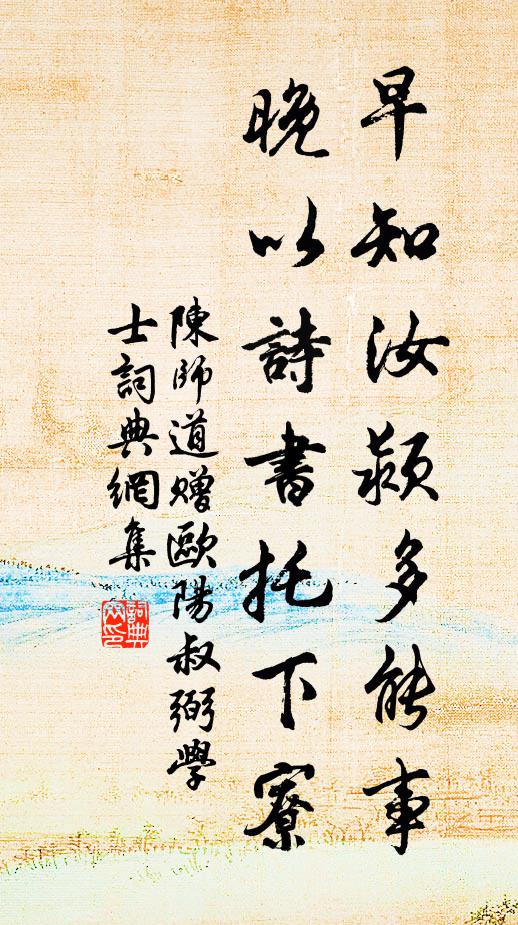 早知汝潁多能事
晚以詩書托下寮
陳師道贈歐陽叔弼學
士詞典網集
詞典
网印